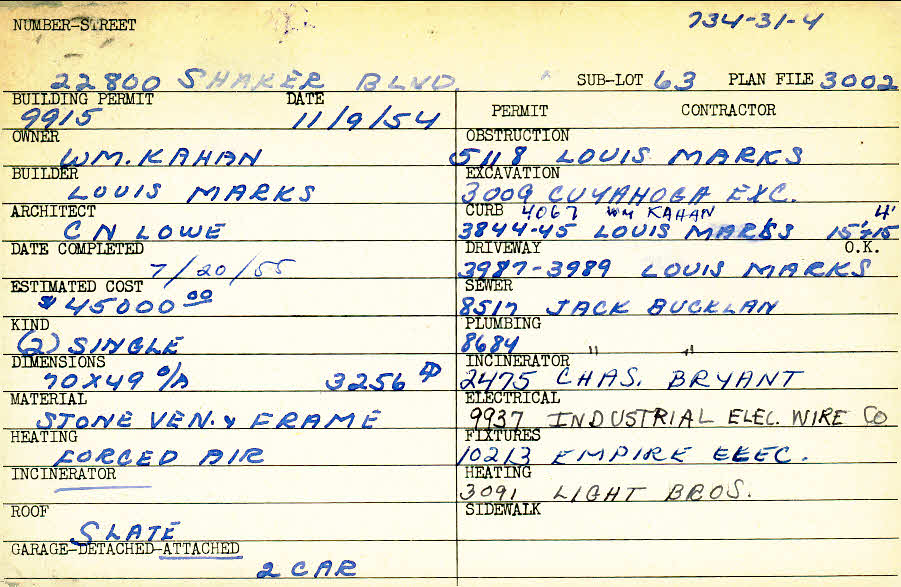 NUMBER-STREET
734-31-4
22800 SHAKER BLVD. SUB-LOT 63 PLAN FILE 3002
BUILDING PERMIT DATE
9915 11/9/54
OWNER
WM. KAHAN
BUILDER
LOUIS MARKS
ARCHITECT
C N LOWE
DATE COMPLETED
7/20/55
ESTIMATED COST
$45000 00
KIND
(2) SINGLE
DIMENSIONS
70X49 O/A 3256
MATERIAL
STONE VEN. & FRAME
HEATING
FORCED AIR
INCINERATOR
ROOF
SLATE
GARAGE-DETACHED-ATTACHED
2 CAR
PERMIT CONTRACTOR
OBSTRUCTION
5118 LOUIS MARKS
EXCAVATION
3009 CUYAHOGA EXC.
CURB 4067 WM KAHAN 4'
3844-45 LOUIS MARKS 15'+15
DRIVEWAY O.K.
3987-3989 LOUIS MARKS
SEWER
8517 JACK BUCKLAN
PLUMBING
8684 " "
INCINERATOR
2475 CHAS. BRYANT
ELECTRICAL
9937 INDUSTRIAL ELEC. WIRE CO
FIXTURES
10213 EMPIRE ELEC.
HEATING
3091 LIGHT BROS.
SIDEWALK